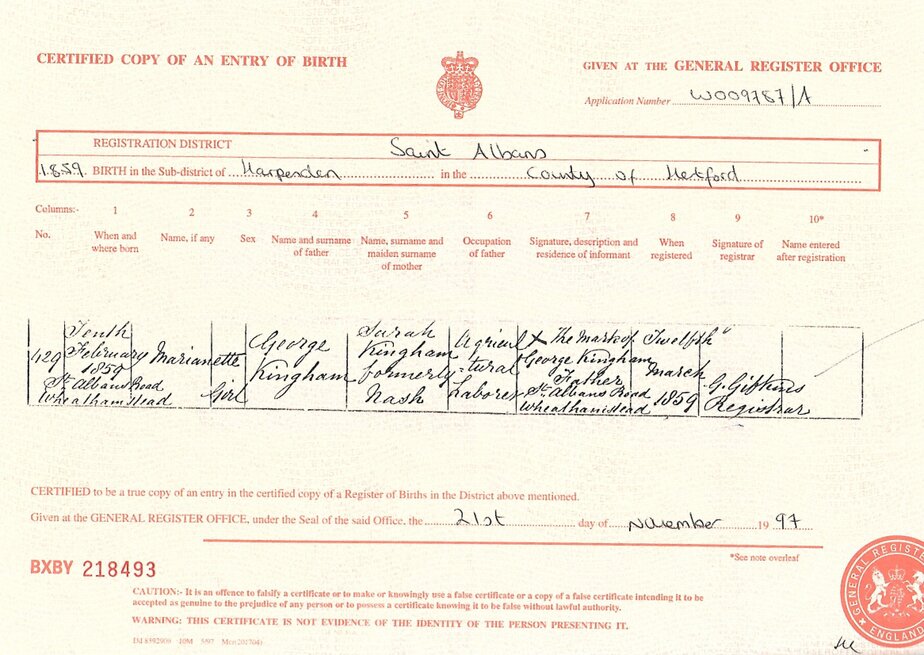 CERTIFIED COPY OF AN ENTRY OF BIRTH
GIVEN AT THE GENERAL REGISTER OFFICE
Application Number W009787/A
REGISTRATION DISTRICT Saint Albans
1859. BIRTH in the Sub-district of Harpenden in the County of Hertford
Columns:- 1 2 3 4 5 6 7 8 9 10*
No. When and where born Name, if any Sex Name and surname of father Name, surname and maiden surname of mother Occupation of father Signature, description and residence of informant When registered Signature of registrar Name entered after registration
429 Tenth February 1859 St. Albans Road Wheathamstead
Marianette
Girl
George Kingham
Sarah Kingham formerly Nash
Agricultural Laborer
X The Mark of George Kingham Father St. Albans Road Wheathamstead
Twelfth March 1859
G. Gifkins Registrar
CERTIFIED to be a true copy of an entry in the certified copy of a Register of Births in the District above mentioned.
Given at the GENERAL REGISTER OFFICE, under the Seal of the said Office, the 21st day of November 1997
*See note overleaf
BXBY 218493
CAUTION:- It is an offence to falsify a certificate or to make or knowingly use a false certificate or a copy of a false certificate intending it to be
accepted as genuine to the prejudice of any person or to possess a certificate knowing it to be false without lawful authority.
WARNING: THIS CERTIFICATE IS NOT EVIDENCE OF THE IDENTITY OF THE PERSON PRESENTING IT.
GENERAL REGISTER
ENGLAND